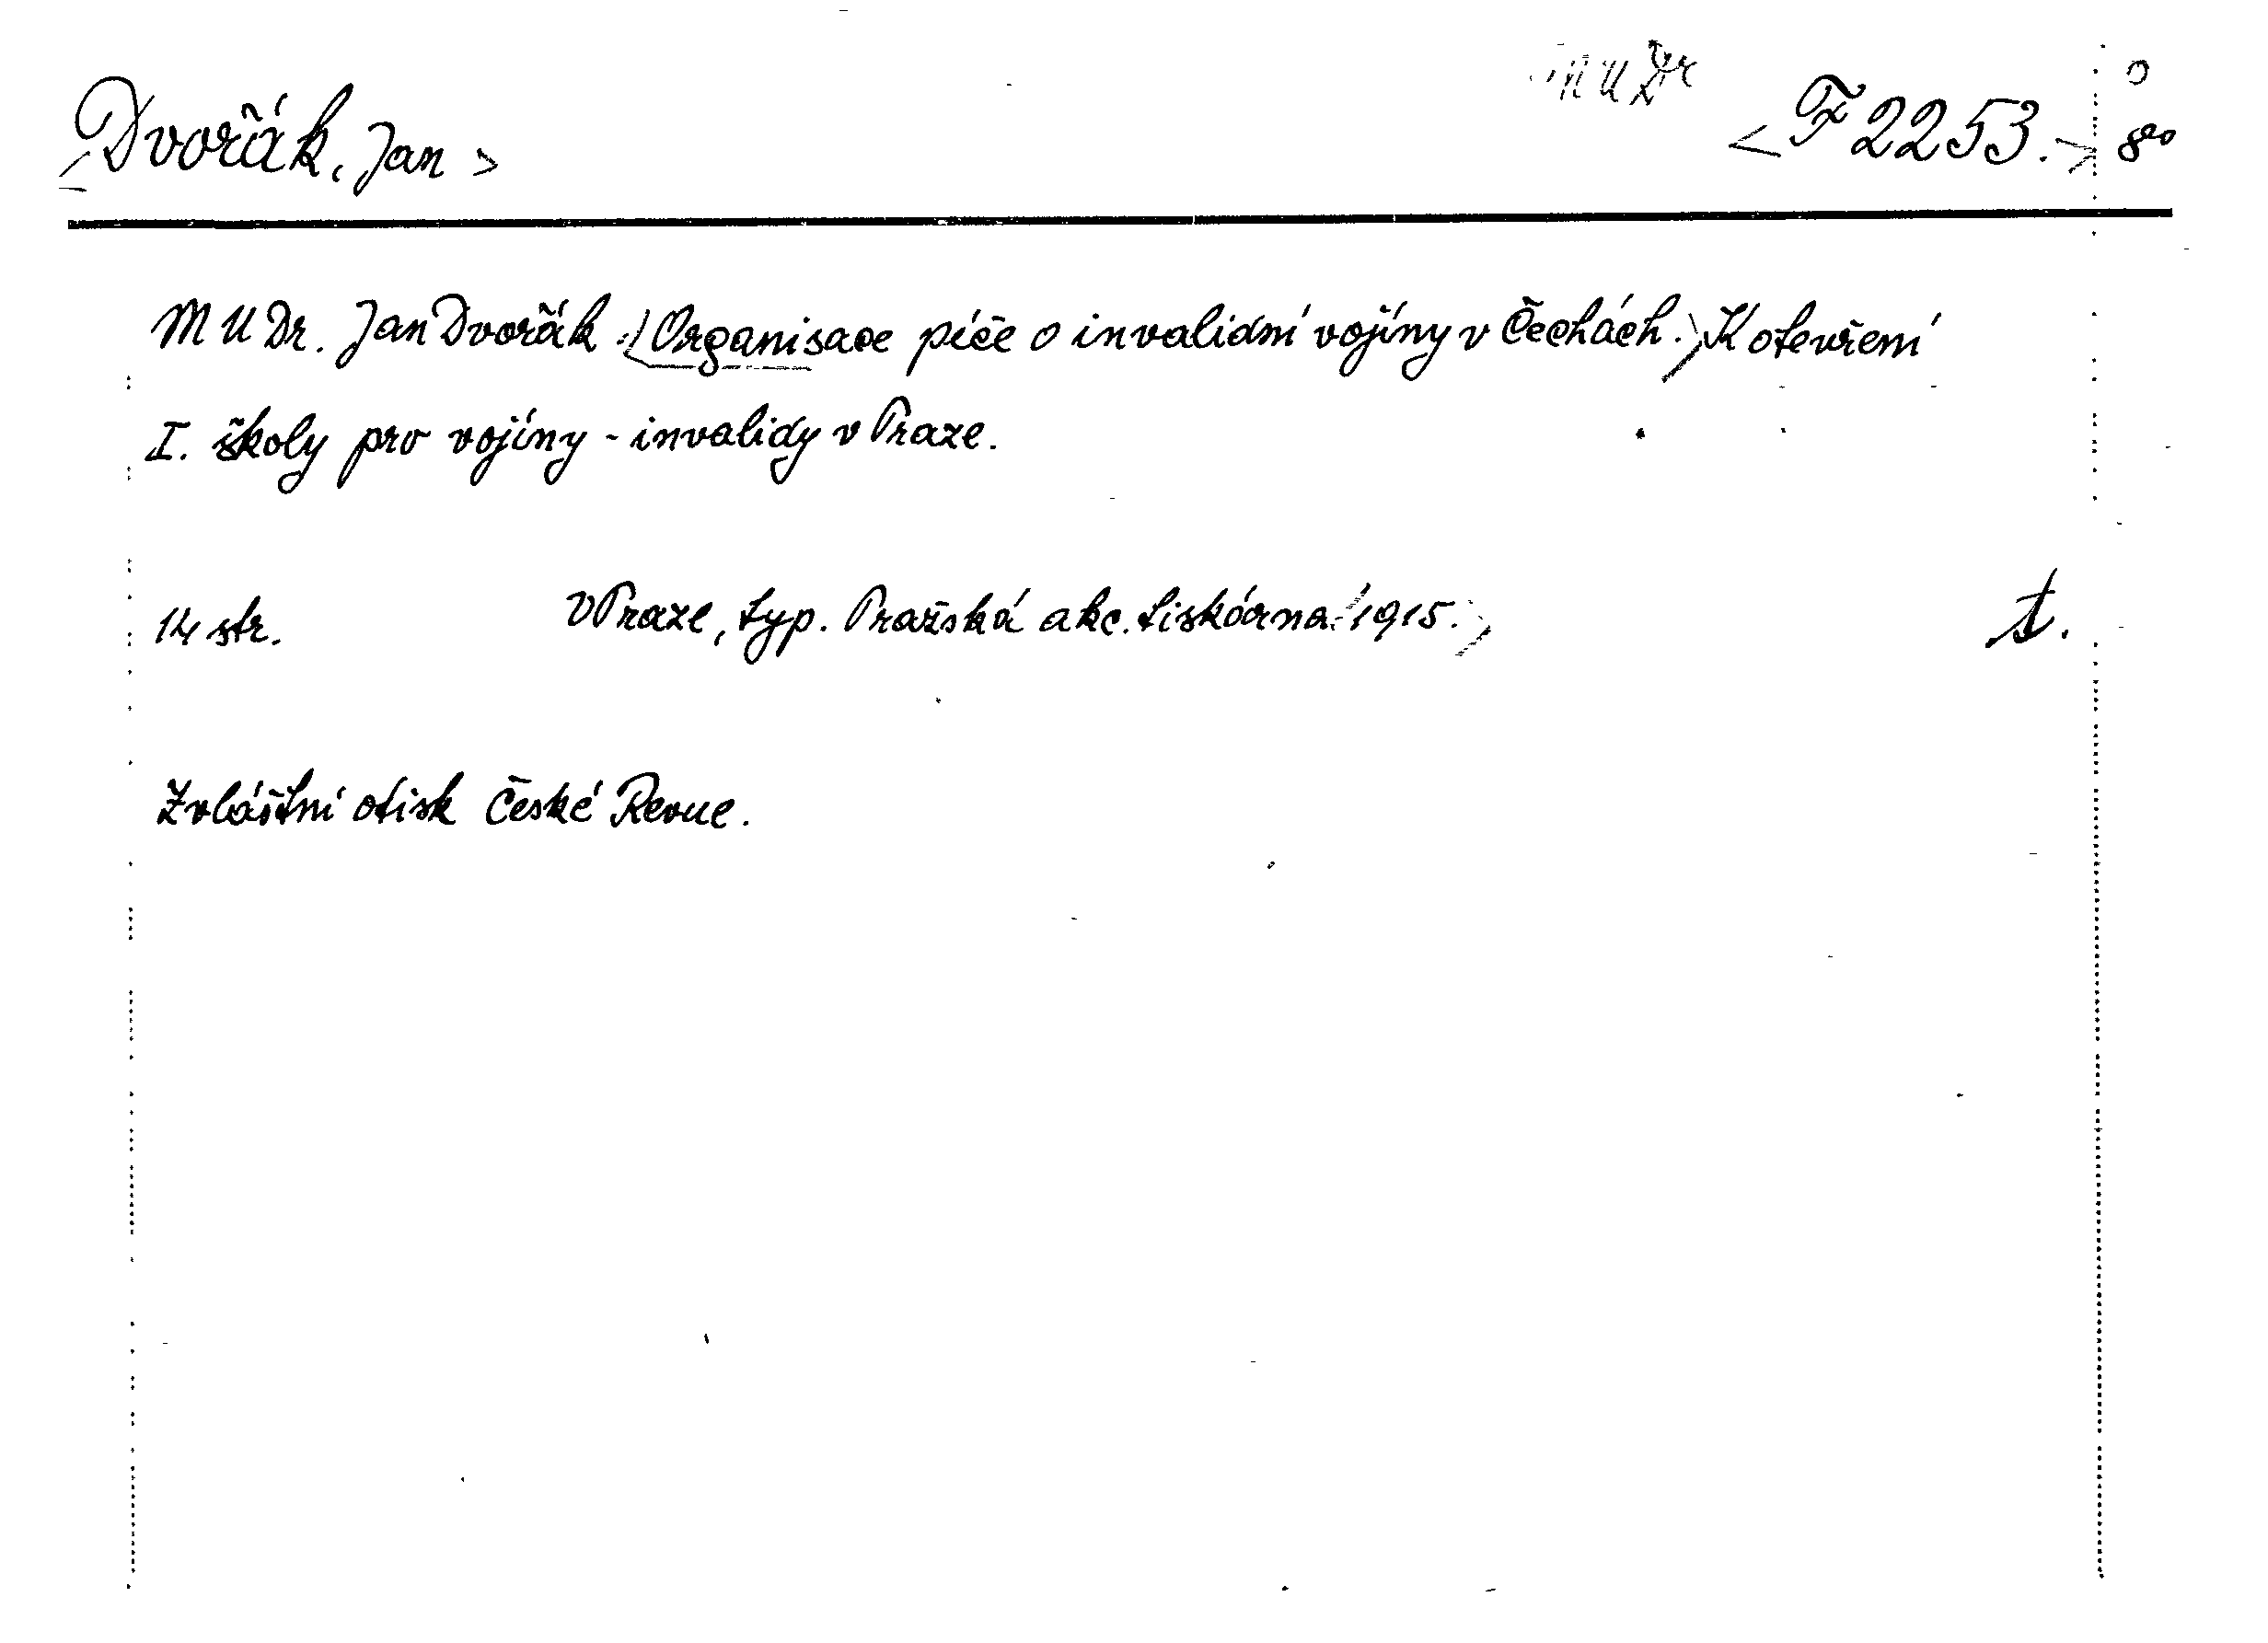 MUDr
<Dvořák, Jan> <F 2253.> 8°
MUDr. Jan Dvořák: Organisace péče o invalidní vojíny v Čechách. K otevření
I. školy pro vojíny - invalidy v Praze.
14 str. V Praze, typ. Pražská akc. tiskárna 1915. t.
Zvláštní otisk České Revue.